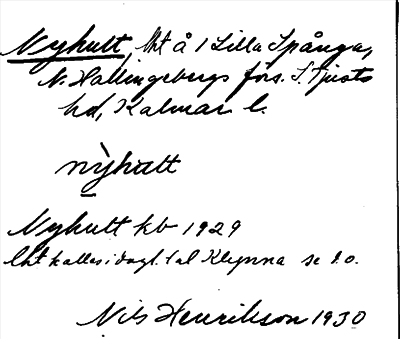 Nyhult, lht å 1 Lilla Spånga,
N. Hallingebergs förs. S. Tjusts
hd, Kalmar l.
nỳhult
Nyhult kb 1929
Lht kallas i dagl. tal Klynna se d.o.
Nils Henrikson 1930